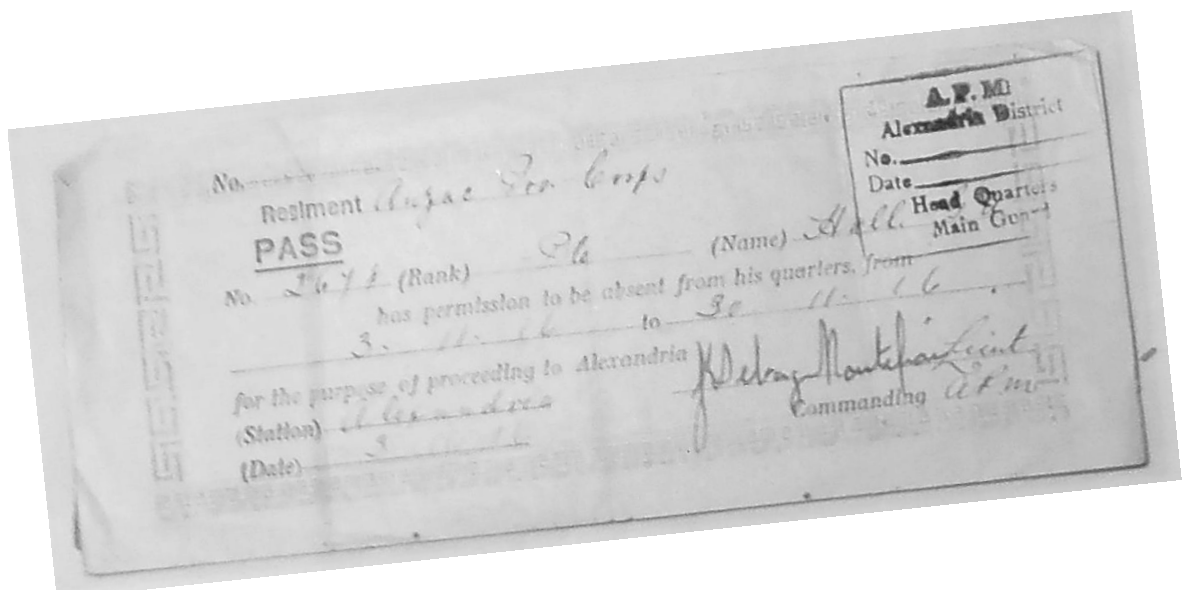 A.P.M.
Alexandria District
No.
Date
Head Quarters
Main Guard
No.
Regiment Anzac Corps
PASS
No. 2671 (Rank) Pte (Name) Hall
has permission to be absent from his quarters, from
3. 11. 16 to 30 11. 16
for the purpose of proceeding to Alexandria
(Station) Alexandria
(Date) 3
Lieut
Commanding A.P.M.